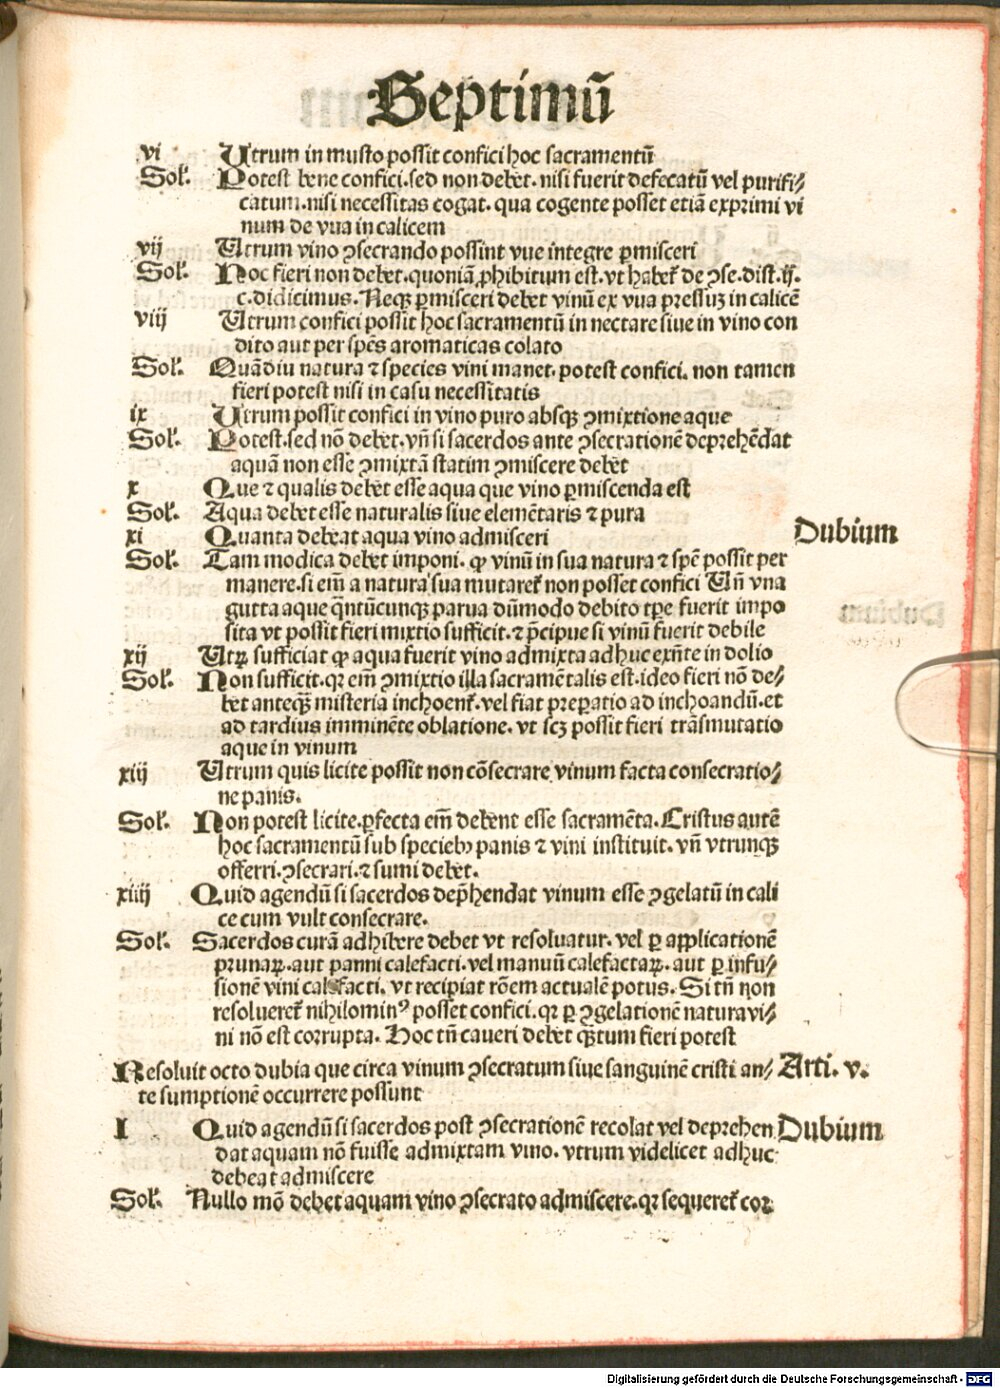 Septimū
vi Utrum in musto possit confici hoc sacramentū
Sol'. Potest bene confici. sed non debet. nisi fuerit defecatū vel purifi⸗
catum. nisi necessitas cogat. qua cogente posset etiā exprimi vi
num de vua in calicem
vij Utrum vino ꝯsecrando possint vue integre ꝑmisceri
Sol'. Hoc fieri non debet. quoniā ꝓhibitum est. vt habet᷑ de ꝯse. dist. ij.
c. didicimus. Neqꝫ ꝑmisceri debet vinū ex vua pressuꝫ in calicē
viij Utrum confici possit hoc sacramentū in nectare siue in vino con
dito aut per spēs aromaticas colato
Sol'. Quādiu natura ⁊ species vini manet. potest confici. non tamen
fieri potest nisi in casu necessitatis
ix Utrum possit confici in vino puro absqꝫ ꝯmixtione aque
Sol'. Potest. sed nō debet. vn̄ si sacerdos ante ꝯsecrationē deprehēdat
aquā non esse ꝯmixtā statim ꝯmiscere debet
x Que ⁊ qualis debet esse aqua que vino ꝑmiscenda est
Sol'. Aqua debet esse naturalis siue elemētaris ⁊ pura
xi Quanta debeat aqua vino admisceri
Dubium
Sol'. Tam modica debet imponi. ꝙ vinū in sua natura ⁊ spē possit per
manere. si em̄ a natura sua mutaret᷑ non posset confici Un̄ vna
gutta aque qn̄tūcunqꝫ parua dūmodo debito tꝑe fuerit impo
sita vt possit fieri mixtio sufficit. ⁊ p̄cipue si vinū fuerit debile
xij Utꝝ sufficiat ꝙ aqua fuerit vino admixta adhuc exn̄te in dolio
Sol'. Non sufficit. qꝛ em̄ ꝯmixtio illa sacramētalis est. ideo fieri nō de⸗
bet anteqꝫ̄ misteria inchoent᷑. vel fiat preꝑatio ad inchoandū. et
ad tardius imminēte oblatione. vt scꝫ possit fieri trāsmutatio
aque in vinum
xiij Utrum quis licite possit non cōsecrare vinum facta consecratio⸗
ne panis.
Sol'. Non potest licite. ꝑfecta em̄ debent esse sacramēta. Cristus autē
hoc sacramentū sub speciebꝰ panis ⁊ vini instituit. vn̄ vtrunqꝫ
offerri. ꝯsecrari. ⁊ sumi debet.
xiiij Quid agendū si sacerdos dep̄hendat vinum esse ꝯgelatū in cali
ce cum vult consecrare.
Sol'. Sacerdos curā adhibere debet vt resoluatur. vel ꝑ applicationē
prunaꝝ. aut panni calefacti. vel manuū calefactaꝝ. aut ꝑ infu⸗
sionē vini calefacti. vt recipiat rōem actualē potus. Si tn̄ non
resolueret᷑ nihilominꝰ posset confici. qꝛ ꝑ ꝯgelationē natura vi⸗
ni nō est corrupta. Hoc tn̄ caueri debet qꝫ̄tum fieri potest
Resoluit octo dubia que circa vinum ꝯsecratum siue sanguinē cristi an⸗
Arti. v.
te sumptionē occurrere possunt
I Quid agendū si sacerdos post ꝯsecrationē recolat vel deprehen
Dubium
dat aquam nō fuisse admixtam vino. vtrum videlicet adhuc
debeat admiscere
Sol'. Nullo mō debet aquam vino ꝯsecrato admiscere. qꝛ sequeret᷑ cor
Digitalisierung gefördert durch die Deutsche Forschungsgemeinschaft - DFG